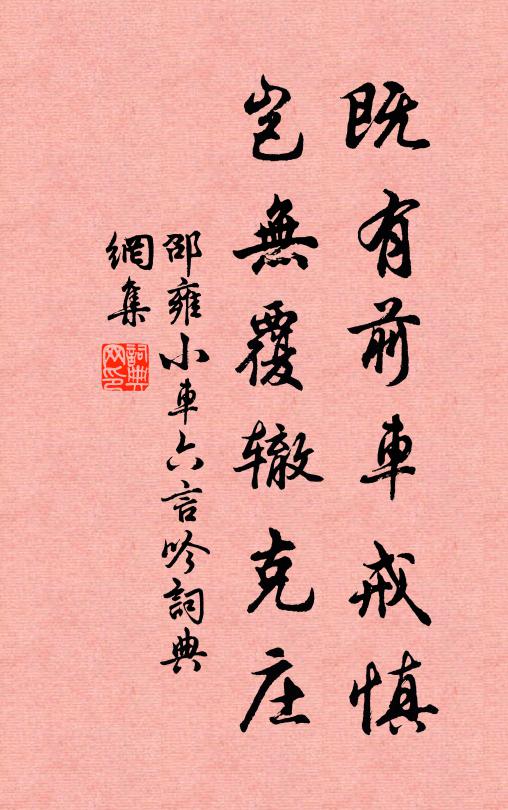 既有前車戒慎
豈無覆辙克庄
邵雍小車六言吟詞典
網集
詞典
网印